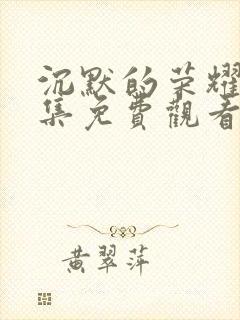 沉默的荣耀
集免費觀看
黄翠萍